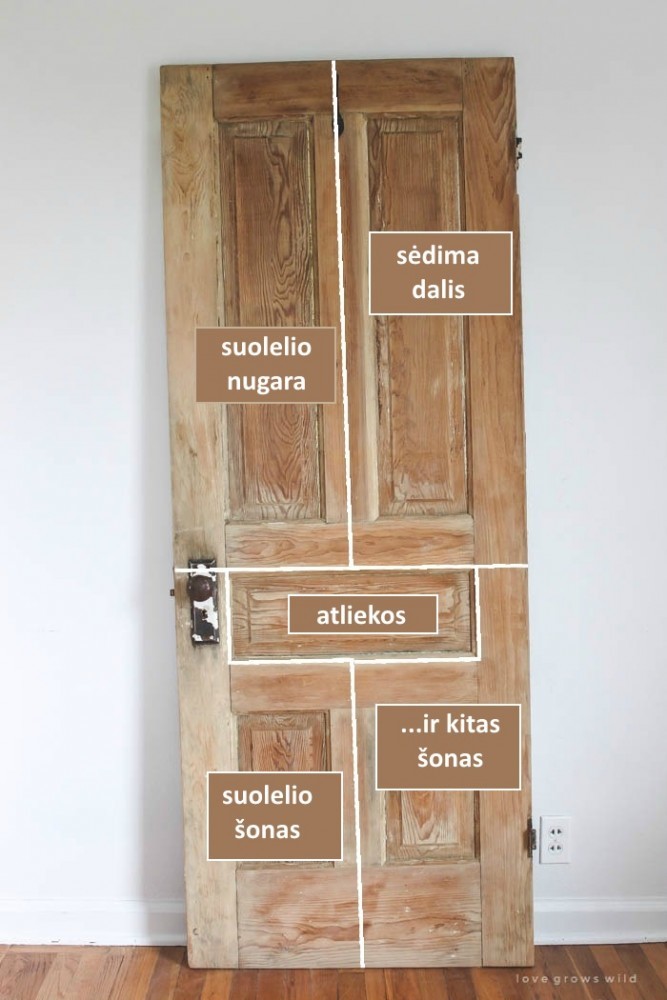 sėdima
dalis
suolelio
nugara
atliekos
...ir kitas
šonas
suolelio
šonas
love grows wild